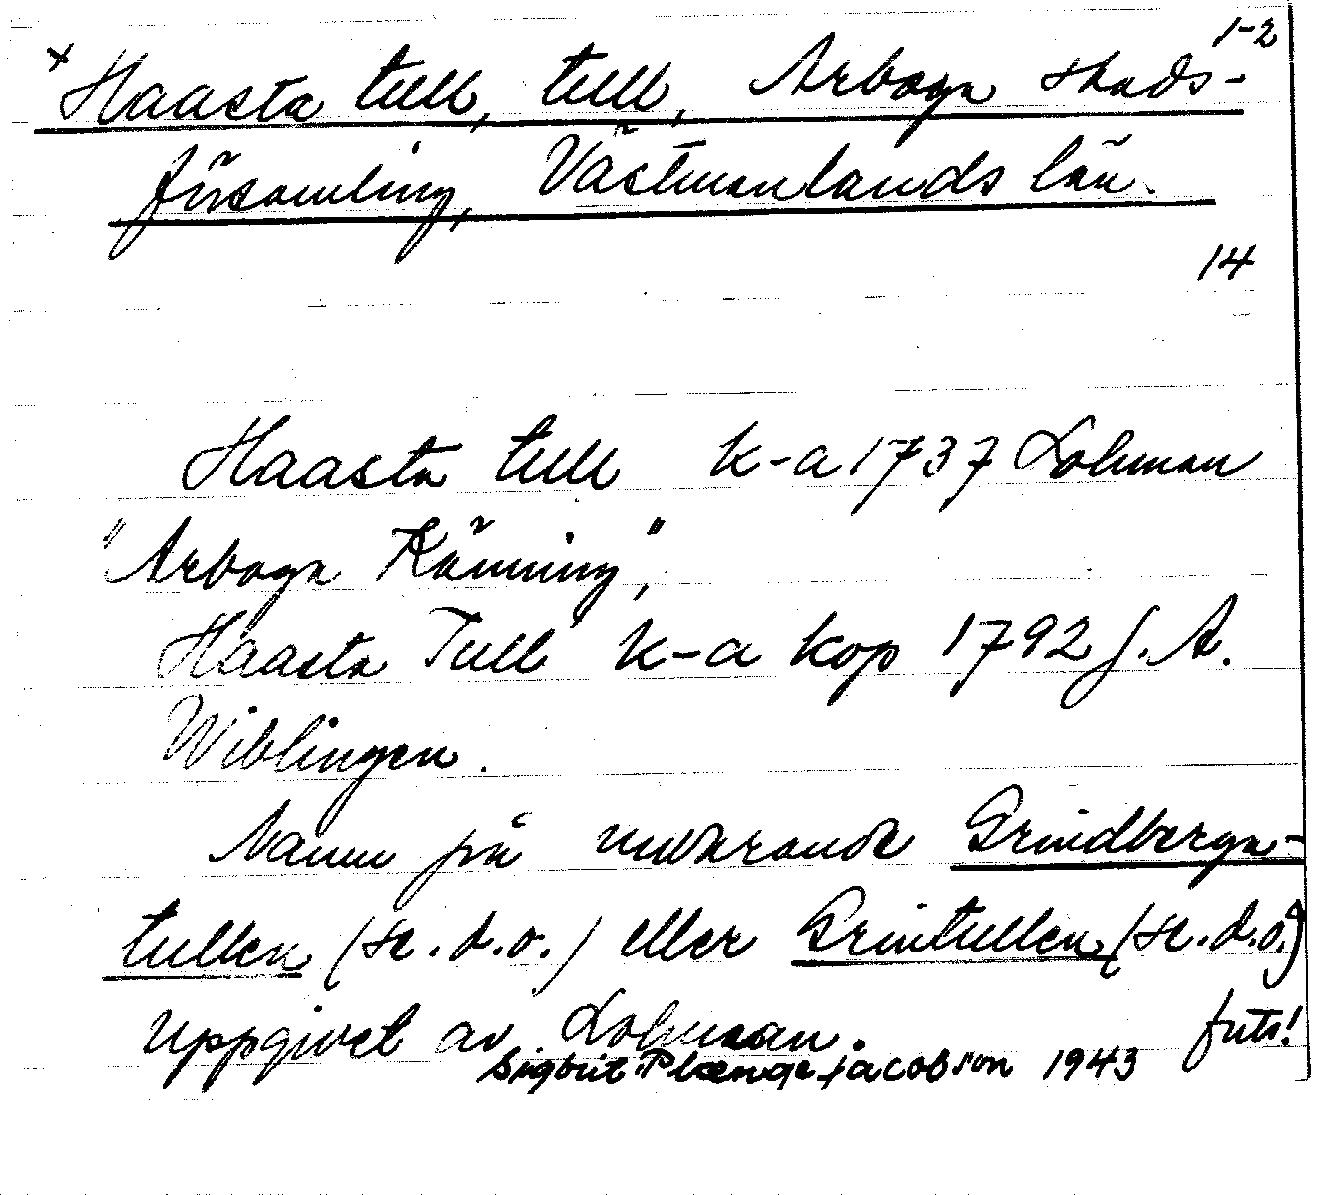 1-2
x Haasta tull, tull, Arboga stads-
församling, Västmanlands län.
14
Haasta tull k-a 1737 Lohman
"Arboga Känning",
Haasta Tull k-a kop 1792 J. A.
Wiblingen.
Namn på nuvarande Grindberga-
tullen (se. d.o.) eller Grintullen (se. d.o.)
uppgivet av Lohman. forts!
Sigbrit Plænge Jacobson 1943